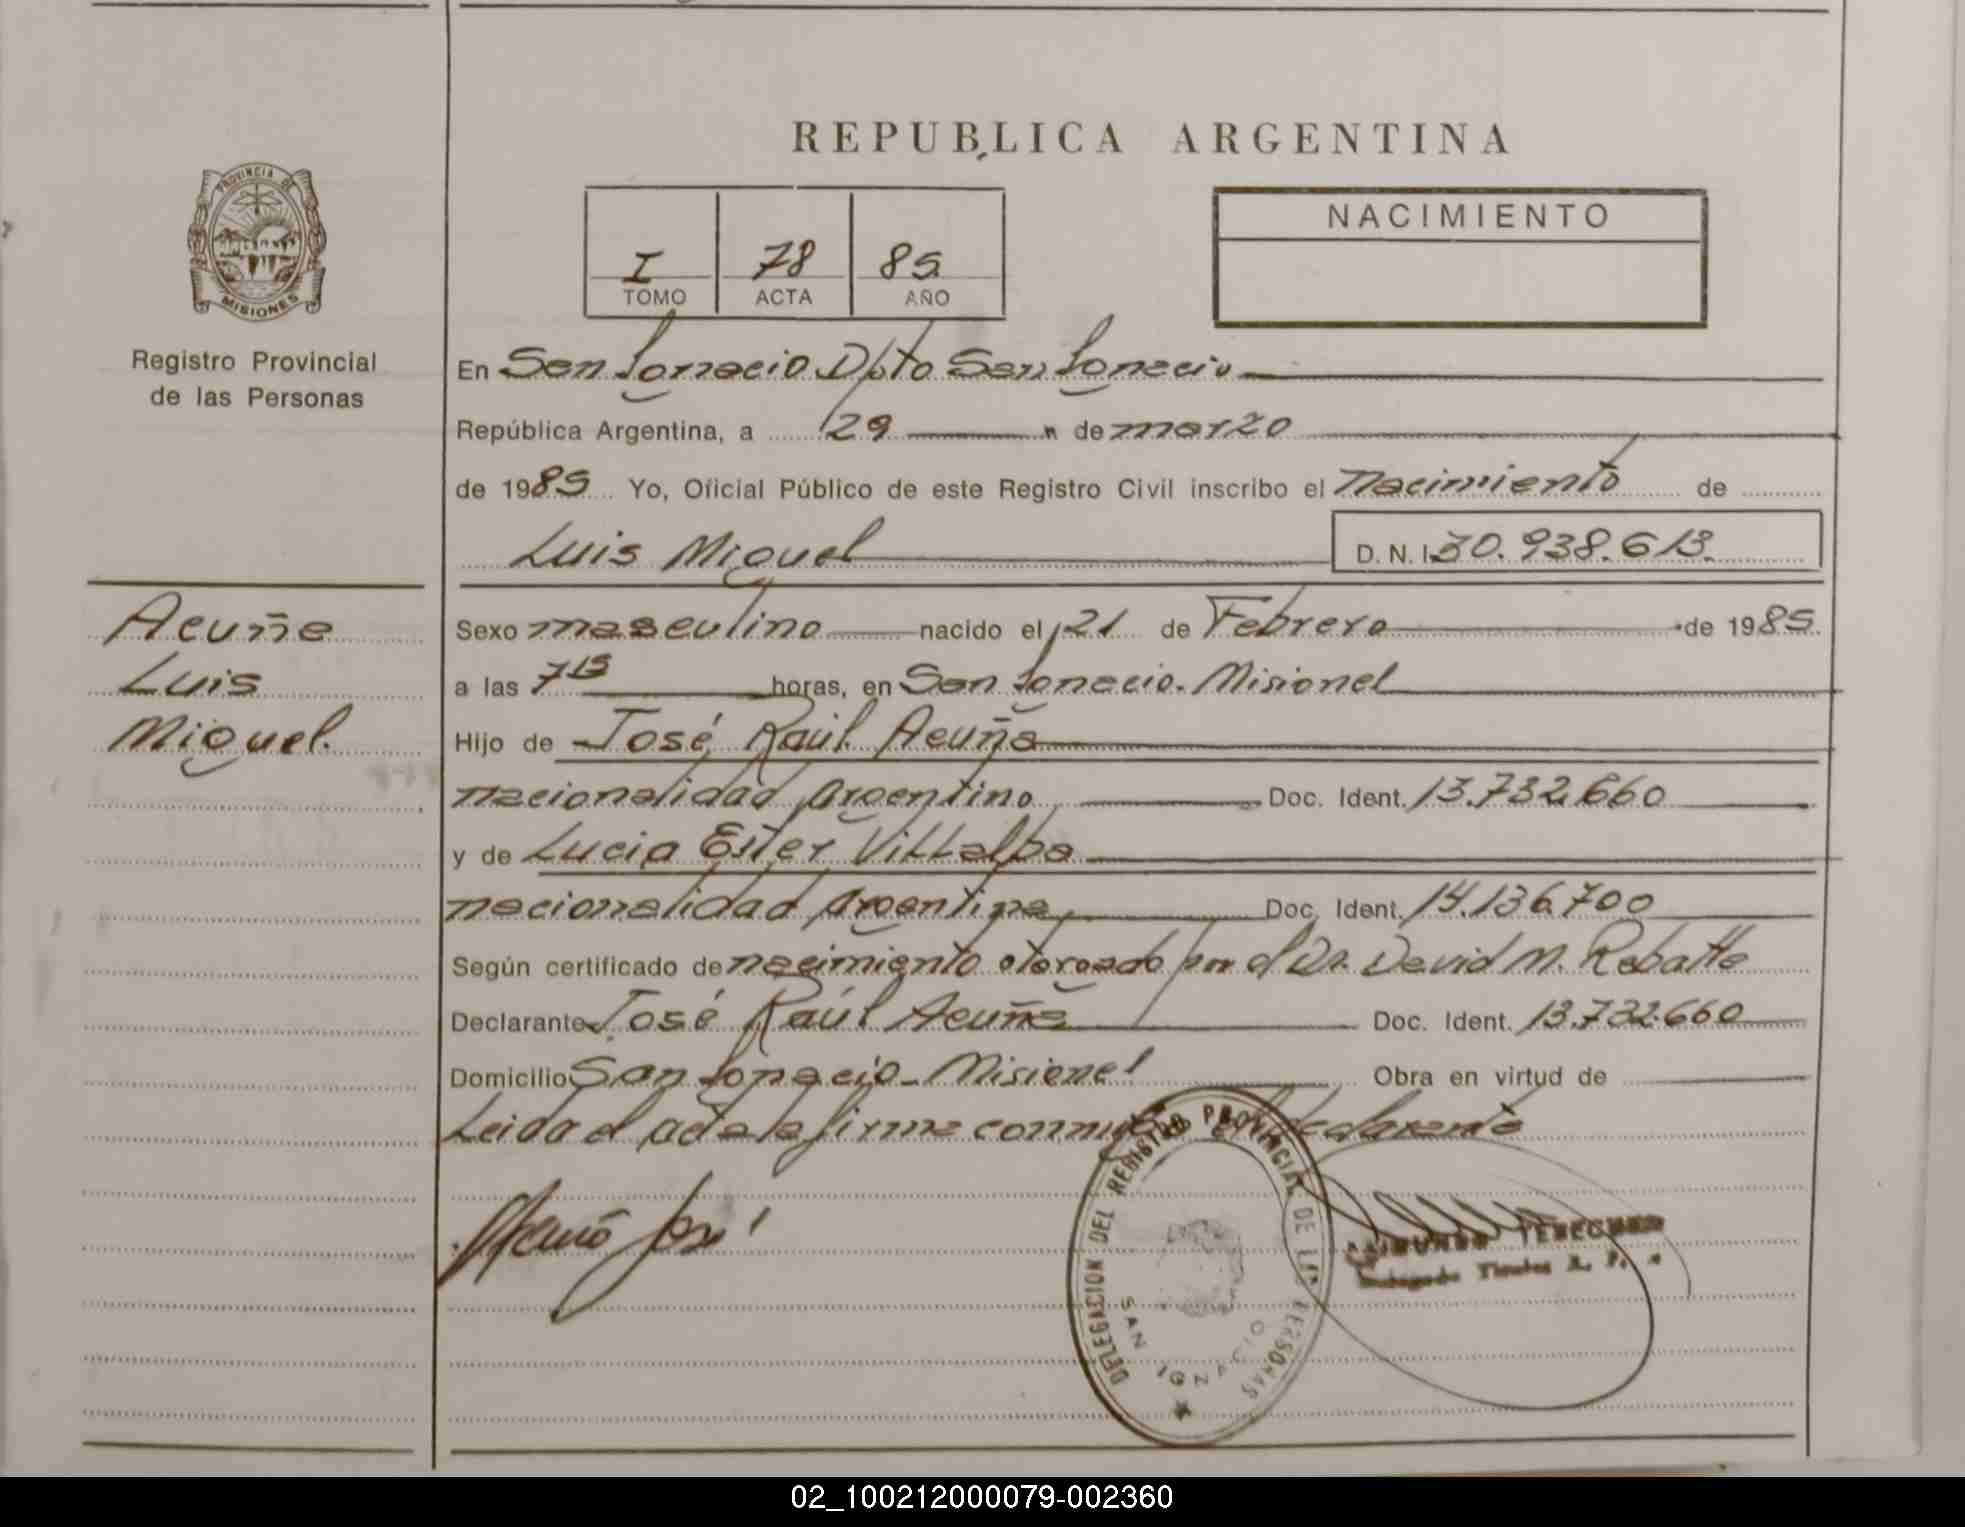 REPUBLICA ARGENTINA
PROVINCIA DE
MISIONES
Registro Provincial
de las Personas
I 78 85
TOMO ACTA AÑO
NACIMIENTO
En San Ignacio Dpto San Ignacio
República Argentina, a 29 de marzo
de 1985 Yo, Oficial Público de este Registro Civil inscribo el nacimiento de
Luis Miguel D. N. I. 30.938.613.
Acuña
Luis
Miguel.
Sexo masculino nacido el 21 de Febrero de 1985.
a las 7 15 horas, en San Ignacio. Misiones
Hijo de José Raúl Acuña
nacionalidad Argentino Doc. Ident. 13.732.660
y de Lucia Ester Villalba
nacionalidad Argentina Doc. Ident. 14.136.700
Según certificado de nacimiento otorgado por el Dr. David M. Rebatto
Declarante José Raúl Acuña Doc. Ident. 13.732.660
Domicilio San Ignacio - Misiones Obra en virtud de
Leida el acta la firma conmigo el declarante
Acuña José
DELEGACION DEL REGISTRO PROVINCIAL DE LAS PERSONAS
SAN IGNACIO
02_100212000079-002360